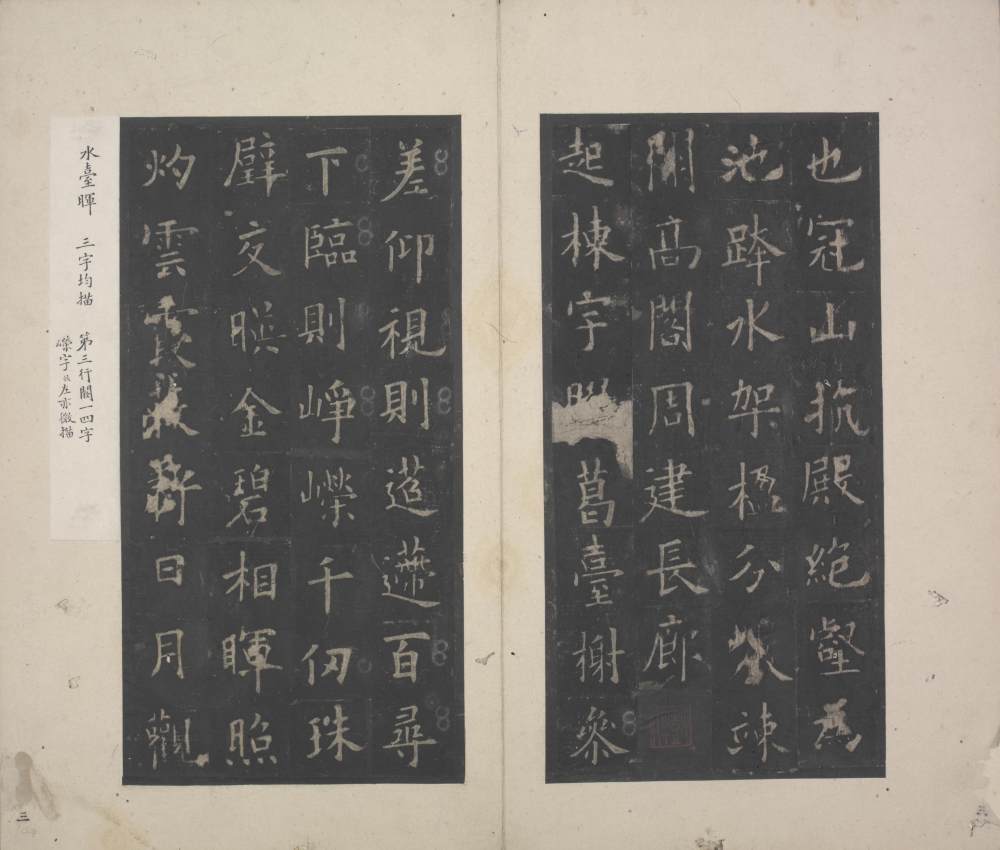 也冠山抗殿絶壑為
池跨水架楹分巖竦
闕髙閣周建長廊
起棟宇葛臺榭參
差仰視則迢遰百尋
下臨則崢嶸千仞珠
璧交暎金碧相暉照
灼雲霞蔽虧日月觀
水臺暉 三字均描 第三行闕一四字
嶸字左亦微描